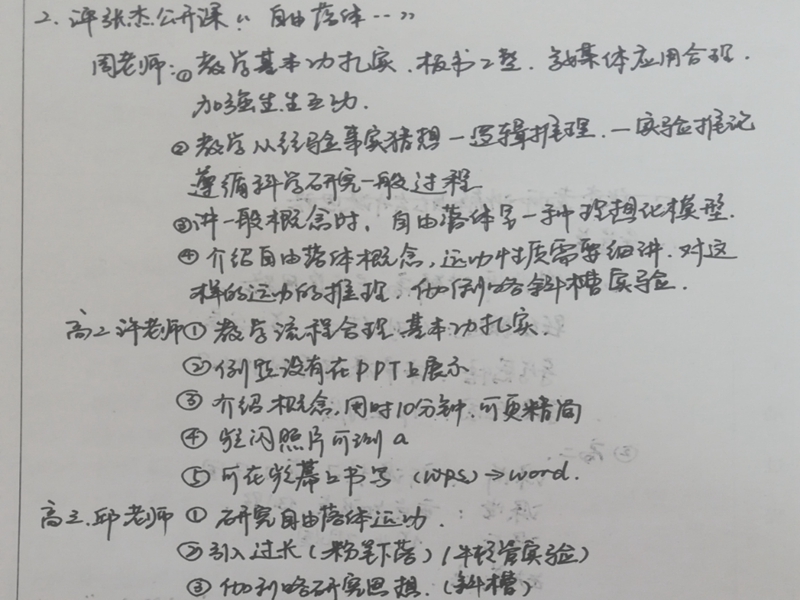 2. 评张杰公开课《自由落体…》
周老师:①教学基本功扎实、板书工整、多媒体应用合理.
加强生生互动.
②教学从经验事实猜想—逻辑推理.—实验推论
遵循科学研究一般过程
③讲一般概念时,自由落体是一种理想化模型.
④介绍自由落体概念,运动性质需要细讲.对这
样的运动的推理.伽利略斜槽实验.
高二许老师①教学流程合理.基本功扎实.
②例题没有在PPT上展示
③介绍概念,用时10分钟,可更精简
④频闪照片可测a
⑤可在荧幕上书写(wps)→word.
高三.邱老师①研究自由落体运动.
②引入过长(粉笔下落)(牛顿管实验)
③伽利略研究思想.(斜槽)